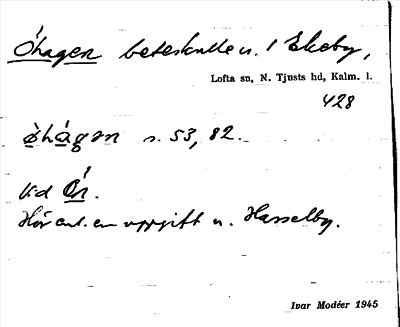 Óhagen beteskulle u. 1 Ekeby,
Lofta sn, N. Tjusts hd, Kalm. l.
428
òhágen s. 53, 82.
Vid Ón.
Hör ant. en uppgift u. Hasselby.
Ivar Modéer 1945